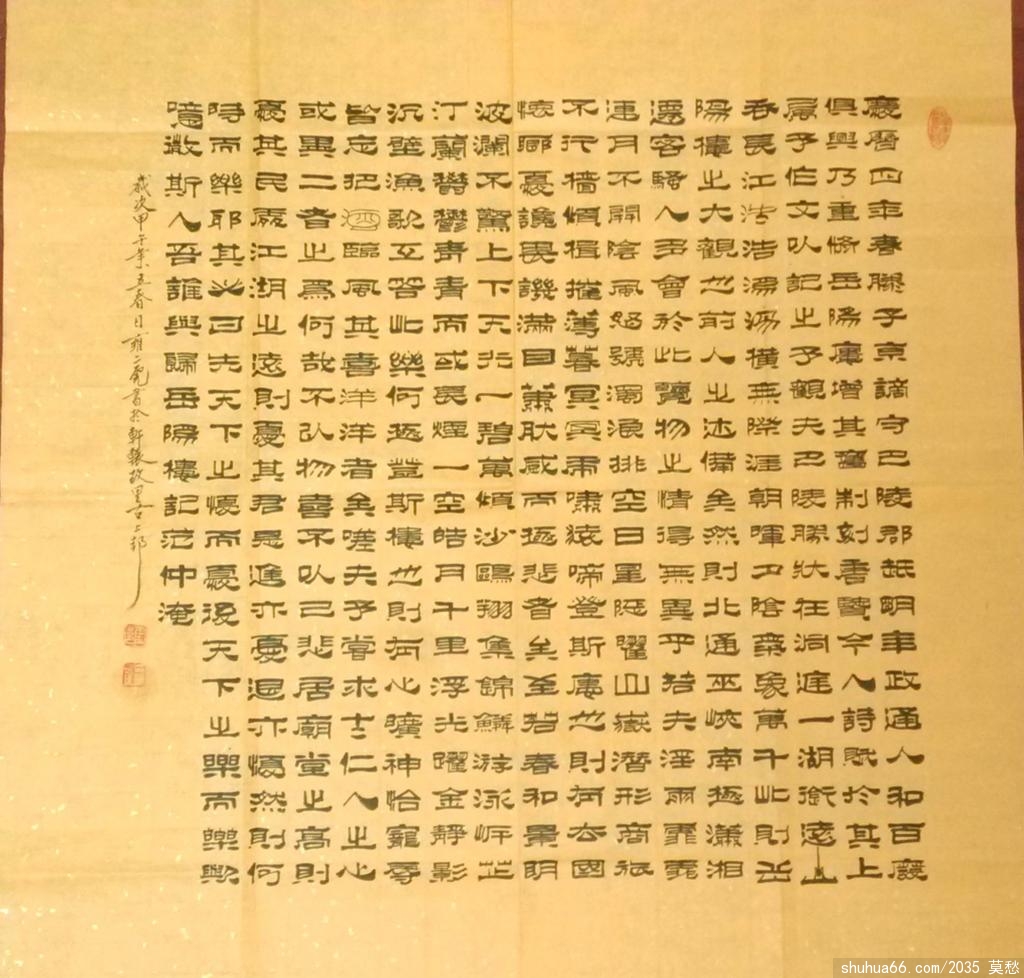 慶曆四年春滕子京謫守巴陵郡越明年政通人和百廢
俱興乃重修岳陽樓增其舊制刻唐賢今人詩賦於其上
屬予作文以記之予觀夫巴陵勝狀在洞庭一湖銜遠山
吞長江浩浩湯湯橫無際涯朝暉夕陰氣象萬千此則岳
陽樓之大觀也前人之述備矣然則北通巫峽南極瀟湘
遷客騷人多會於此覽物之情得無異乎若夫淫雨霏霏
連月不開陰風怒號濁浪排空日星隱曜山嶽潛形商旅
不行檣傾楫摧薄暮冥冥虎嘯猿啼登斯樓也則有去國
懷鄉憂讒畏譏滿目蕭然感而極悲者矣至若春和景明
波瀾不驚上下天光一碧萬頃沙鷗翔集錦鱗游泳岸芷
汀蘭鬱鬱青青而或長煙一空皓月千里浮光躍金靜影
沉璧漁歌互答此樂何極登斯樓也則有心曠神怡寵辱
皆忘把酒臨風其喜洋洋者矣嗟夫予嘗求古仁人之心
或異二者之為何哉不以物喜不以己悲居廟堂之高則
憂其民處江湖之遠則憂其君是進亦憂退亦憂然則何
時而樂耶其必曰先天下之憂而憂後天下之樂而樂歟
噫微斯人吾誰與歸岳陽樓記范仲淹
歲次甲午年孟春日雍二虎書於軒轅故里古上邽
shuhua66.com/2035 莫愁